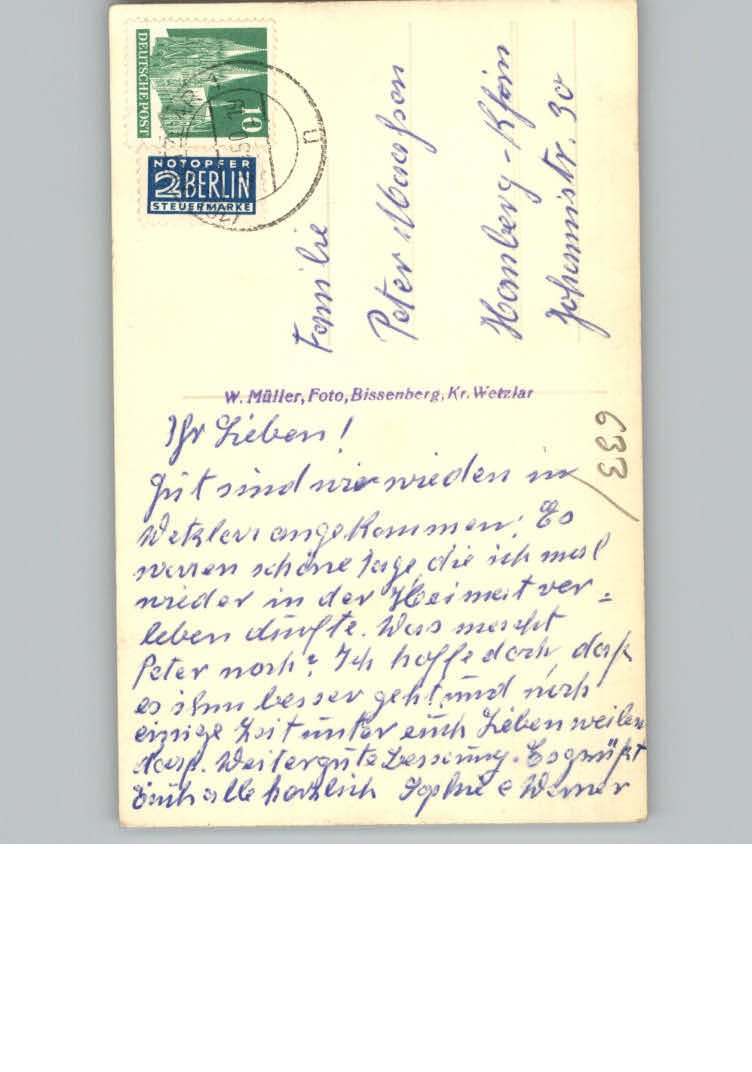 DEUTSCHE POST
10
NOTOPFER
2 BERLIN
STEUERMARKE
Familie
Peter
Homberg-Rhein
Johannistr. 30
W. Müller, Foto, Bissenberg, Kr. Wetzlar
633
Ihr Lieben!
Gut sind wir wieder in
Wetzlar angekommen. Es
waren schöne Tage, die ich mal
wieder in der Heimat ver=
leben durfte. Was macht
Peter noch? Ich hoffe doch, daß
es ihm besser geht und noch
einige Zeit unter euch Lieben weilen
darf. Weiter gute Besserung. Es grüßt
Euch alle herzlich Sophie & Werner